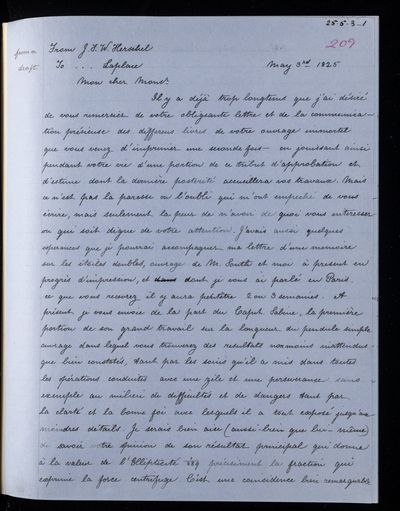 25-5-3-1
209
from a
draft
From J. F. W. Herschel
To .... Laplace
May 3rd 1825
Mon cher Monsr.
Il y a déjà trop longtems que j'ai désiré
de vous remercier de votre obligeante lettre et de la communica-
tion précieuse des differens livres de votre ouvrage immortel
que vous venez d'imprimer une seconde fois — en jouissant ainsi
pendant votre vie d'une portion de ce tribut d'approbation et
d'estime dont la dernière posterité accueillera vos travaux. Mais
ce n'est pas la paresse ni l'oubli qui m'ont empeché de vous
ecrire, mais seulement la peur de n'avoir de quoi vous interesser
ou qui soit digne de votre attention. J'avais aussi quelques
esperances que je pourrai accompagner ma lettre d'une memoire
sur les étoiles doubles, ouvrage de M. South et moi à present en
progrès d'impression, et dont je vous ai parlé en Paris.
ce que vous recevrez il y aura peutêtre 2 ou 3 semaines. A
présent je vous envoie de la part du Capt. Sabine, la première
portion de son grand travail sur la longueur du pendule simple
ouvrage dans lequel vous trouverez des resultats normoins inattendus
que bien constatés, tant par les soins qu'il a mis dans toutes
les opérations conduites avec une zêle et une perseverance sans
exemple au milieu de difficultés et de dangers tant par
la clarté et la bonne foi avec lesquels il a tout exposé jusqu'aux
moindres details. Je serais bien aise (aussi-bien que lui-même)
de savoir votre opinion de son résultat principal qui donne
à la valeur de l'Ellipticité précisément la fraction qui
exprime la force centrifuge. C'est une coincidence bien remarquable